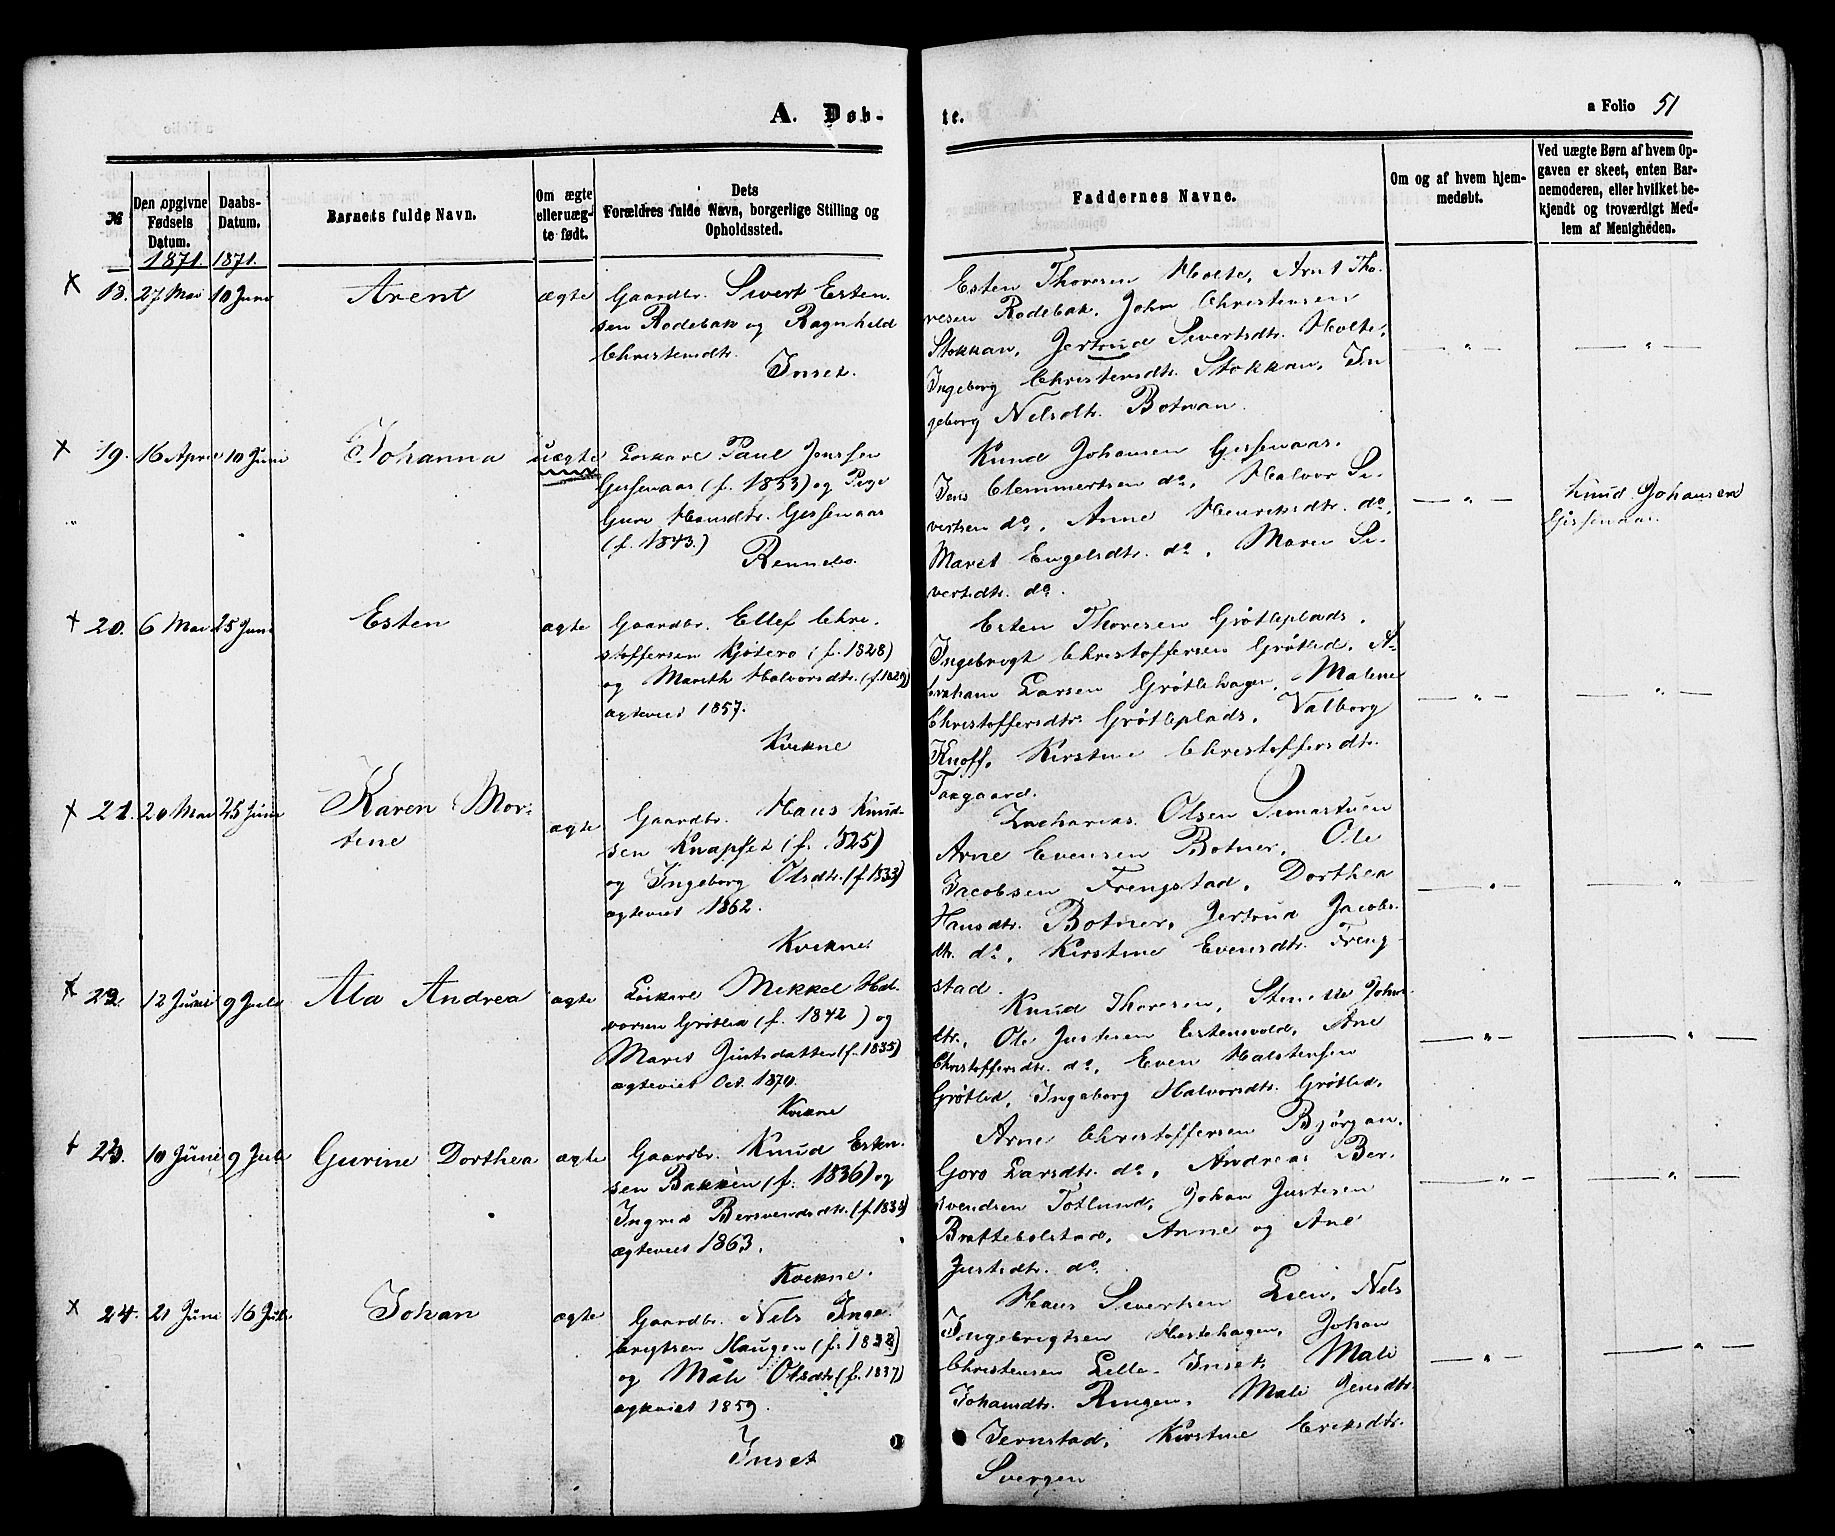 A. Døb-
te.
a Folio 51
№
Den opgivne Fødsels Datum.
Daabs-Datum.
Barnets fulde Navn.
Om ægte eller uæg-te født.
Dets
Forældres fulde Navn, borgerlige Stilling og
Opholdssted.
Faddernes Navne.
Om og af hvem hjem-
medøbt.
Ved uægte Børn af hvem Op-
gaven er skeet, enten Bar-
nemoderen, eller hvilket be-
kjendt og troværdigt Med-
lem af Menigheden.
1871. 1871.
18. 27 Mai 10 Juni Arent ægte
Gaardbr. Sivert Esten-
sen Rodebak og Ragnhild
Christensdtr.
Inset.
Esten Thoresen Holte, Arnt Tho-
resen Rodebak, John Christensen
Stokkan, Jertrud Sivertsdtr. Holte,
Ingeborg Christensdtr. Stokkan, In
geborg Nilsdtr. Botnan.
19. 16 April 10 Juni Johanna uægte
Løskarl Paul Jonssen
Gissenaas (f. 1833) og Pige
Guru Hansdtr. Gissenaas
(f. 1843.)
Rennebo.
Knud Johansen Gissenaas.
Jens Clemmertsen do, Halvor Si-
vertsen do, Anne Henriksdtr. do,
Maret Engelsdtr. do, Maren Si-
vertsdtr. do.
Knud Johansen
Gissenaas.
20. 6 Mai 25 Juni Esten ægte
Gaardbr. Ellef Chri-
stoffersen Kjøterø (f. 1828)
og Marith Halvorsdtr. (f. 1829)
ægteviet 1857.
Kvikne
Esten Thoresen Grøtliplads,
Ingebrigt Christoffersen Grøtlid, A-
braham Larsen Grøtlihagen, Malene
Christoffersdtr. Grøtliplads, Valborg
Knoff, Kirstine Christoffersdtr.
Taagaard.
21. 20 Mai 25 Juni Karen Mor-
tine
ægte
Gaardbr. Hans Knud-
sen Knapset (f. 1825)
og Ingeborg Olsdtr. (f. 1833)
ægteviet 1862.
Kvikne
Zacharias Olsen
Arne Evensen Botner, Ole
Jacobsen Frengstad, Dorthea
Hansdtr. Botner, Jertrud Jacobs-
dtr. do, Kirstine Evensdtr. Freng-
stad.
22. 12 Juni 9 Juli Ala Andrea ægte
Løskarl Mikkel Hal-
vorsen Grøtlid (f. 1842) og
Marit Justsdatter (f. 1835)
ægteviet Oct. 1870.
Kvikne
Knud Thoresen, Johns-
dtr., Ole Justesen Estensvold, Ane
Christoffersdtr. do, Even Halstensen
Grøtlid, Ingeborg Halvorsdtr. Grøtlid.
23. 10 Juni 9 Juli Gurine Dorthea ægte
Gaardbr. Knud Esten-
sen Bakken (f. 1836) og
Ingrid Bersvendsdtr. (f. 1838)
ægteviet 1863.
Kvikne.
Arne Christoffersen Bjørgan,
Goro Larsdtr. do, Andreas Ber-
svendsen Totlund, Johan Justesen
Brattebolstad, Anne og Ane
Justsdtr. do.
24. 21 Juni 16 Juli Johan ægte
Gaardbr. Nils Inge-
brigtsen Haugen (f. 1828)
og Mali Olsdtr. (f. 1837)
ægteviet 1859.
Inset
Hans Sivertsen Lien, Nils
Ingebrigtsen Hestehagen, Johan
Christensen Lille-Inset, Mali
Johansdtr. Ringen, Mali Jensdtr.
Jernstad, Kirstine Eriksdtr.
Svergen